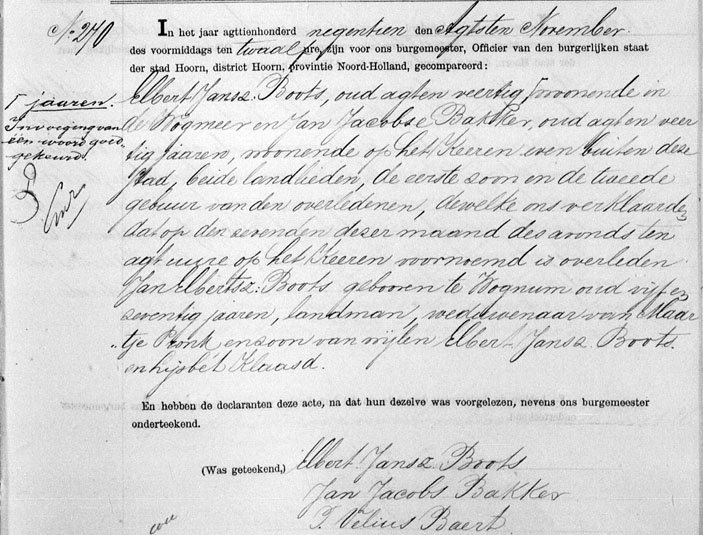 N.º 240
In het jaar agttienhonderd negentien den Agtsten November
des voormiddags ten twaalf ure, zijn voor ons burgemeester, Officier van den burgerlijken staat
der stad Hoorn, district Hoorn, provintie Noord-Holland, gecompareerd:
Elbert Jansz: Boots, oud agten veertig ⌈ woonende in
de Wogmeer en Jan Jacobse Bakker, oud agten veer
tig jaaren, woonende op het Keeren even buiten deze
stad, beide landlieden, de eerste zoon en de tweede
gebuur van den overledenen, dewelke ons verklaarde
dat op den zevenden dezer maand des avonds ten
agt uure op het Keeren voornoemd is overleden
Jan Elbertsz: Boots gebooren te Wognum oud vijf en
zeventig jaaren, landman, weduwenaar van Maar
„tje Pronk en zoon van wijlen Elbert Jansz. Boots
en Lijsbét Klaasd.
⌈ jaaren.
Invoeging van
één woord goed
gekeurd.
En hebben de declaranten deze acte, na dat hun dezelve was voorgelezen, nevens ons burgemeester
onderteekend.
(Was geteekend,) Elbert Jansz. Boots
Jan Jacobs Bakker
P. Velius Baert